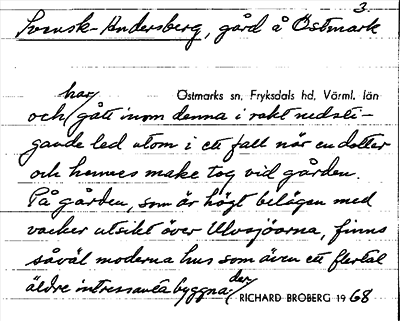 3.
Svensk-Andersberg, gård å Östmark
Östmarks sn, Fryksdals hd, Värml. län
har
och gått inom denna i rakt nedsti-
gande led utom i ett fall när en dotter
och hennes make tog vid gården.
På gården, som är högt belägen med
vacker utsikt över Ulvsjöarna, finns
såväl moderna hus som även ett flertal
äldre intressanta byggna-
der
RICHARD BROBERG 1968